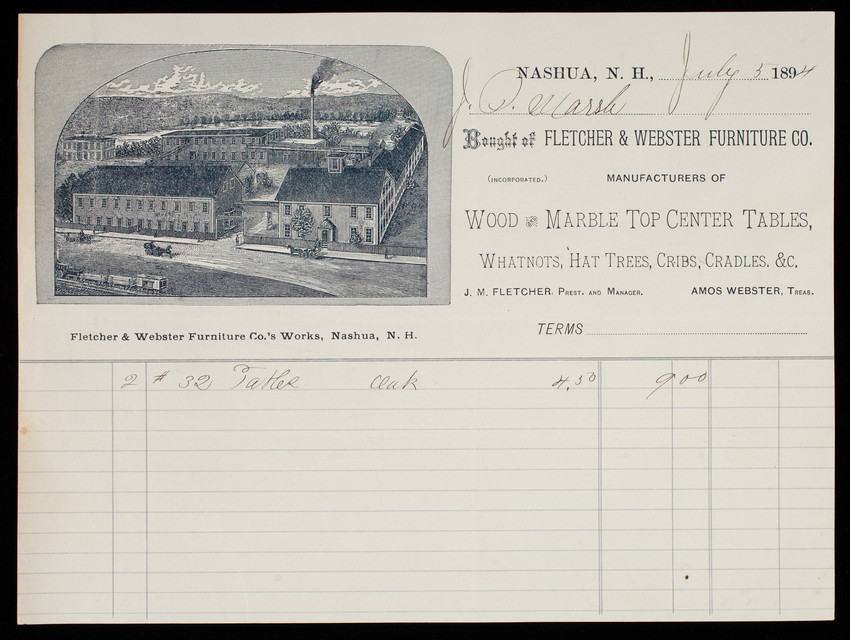 NASHUA, N. H., July 5 1894
J. P. Marsh
Bought of FLETCHER & WEBSTER FURNITURE CO.
(INCORPORATED.) MANUFACTURERS OF
WOOD AND MARBLE TOP CENTER TABLES,
WHATNOTS, HAT TREES, CRIBS, CRADLES, &C.
J. M. FLETCHER, PREST. AND MANAGER. AMOS WEBSTER, TREAS.
TERMS
Fletcher & Webster Furniture Co.'s Works, Nashua, N. H.
2 # 32 Tables Oak 4.50 9 00